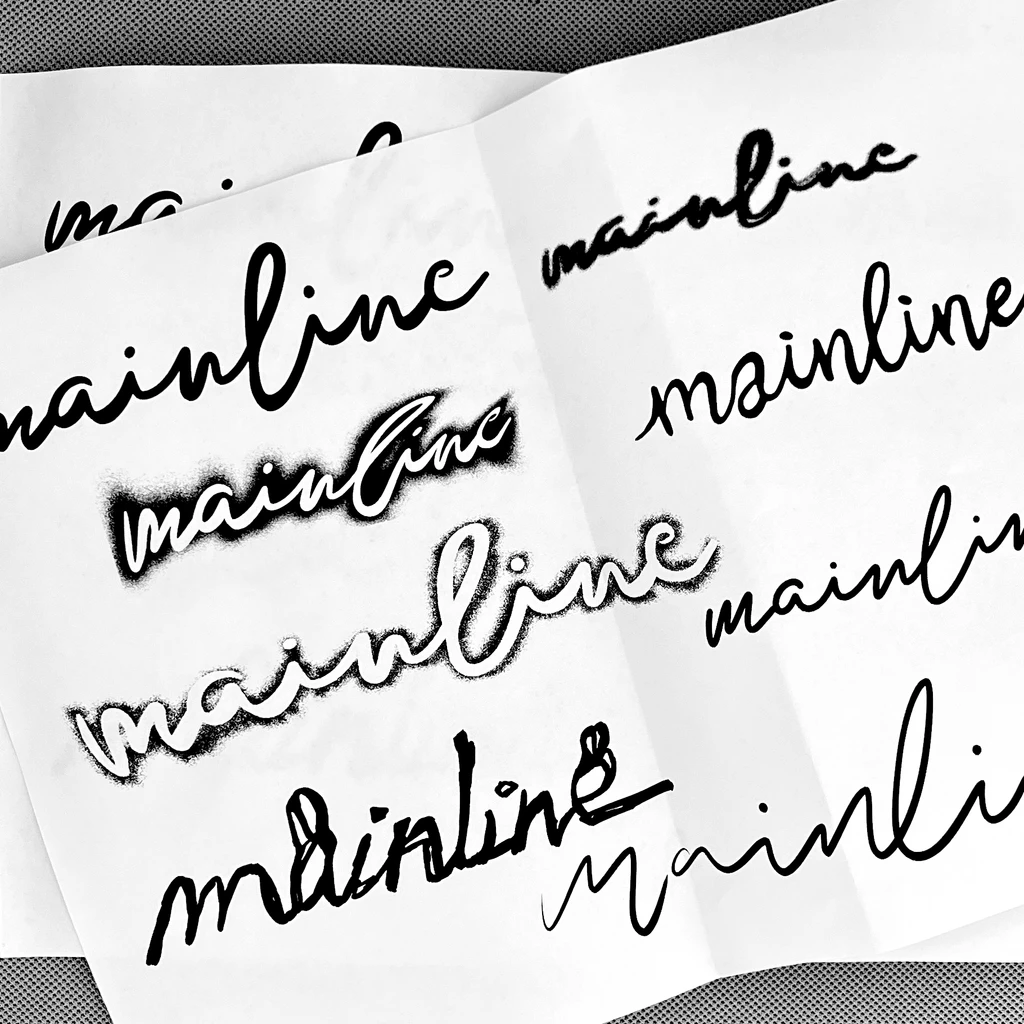 mai l
mainline
mainline
mainline
mainline
mainline
mainline
mainlin
mainli